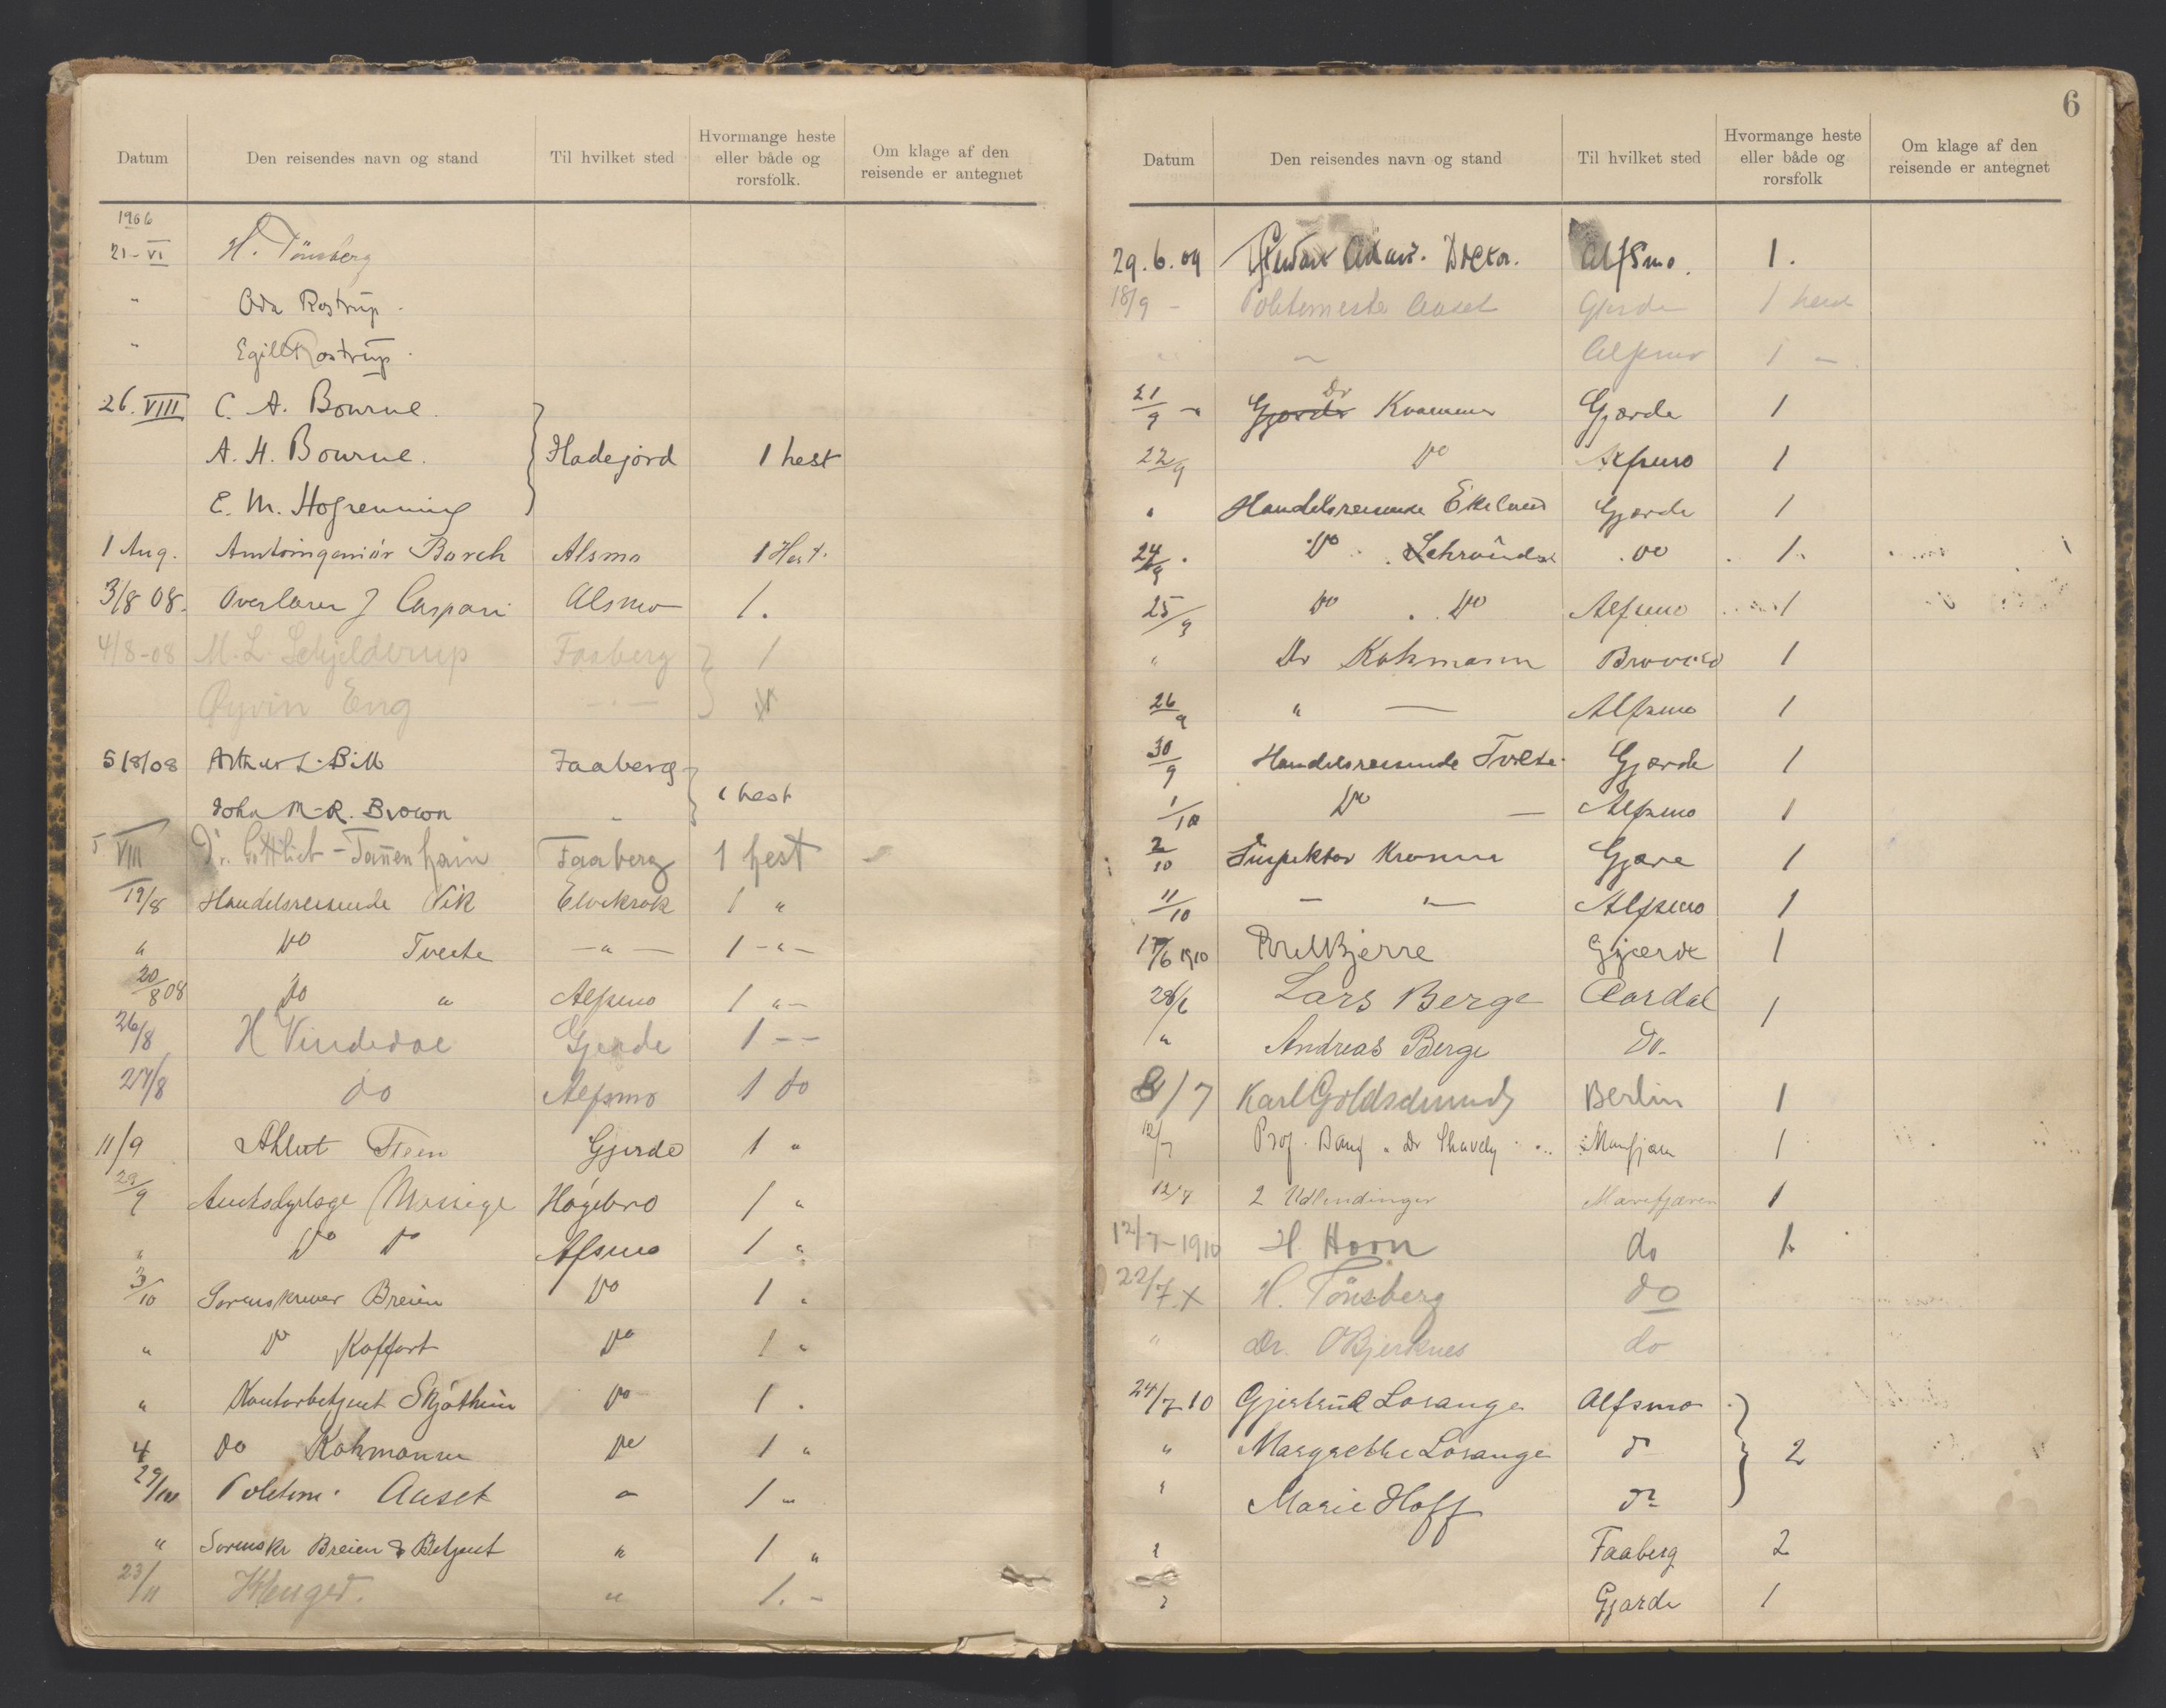 Datum Den reisendes navn og stand Til hvilket sted Hvormange heste eller både og rorsfolk. Om klage af den reisende er antegnet
1906
21-VI H. Tönsberg
" Oda Rostrup.
" Egill Rostrup.
26.VIII C. A. Bourne.
A. H. Bourne. Hadejord 1 hest
E. M. Hofrenning
1 Aug. Amtsingeniör Barch Alsmo 1 Hest.
3/8 08. Overlærer J Caspari Alsmo 1.
4/8-08 M. L. Schjelderup Faaberg 1
Øyvin Eng
5/8/08 Arthur L. Bill Faaberg
John M-R. Brown 1 hest
5 VIII Dr. Gottlieb-Tannenhain Faaberg 1 hest
19/8 Handelsreisende Vik Elvekrok 1 "
" Do Tveite -"- 1 -"-
20/8 08 Do " Alfsmo 1 "-
26/8 H Vindedal Gjerde 1 --
27/8 do Alfsmo 1 do
11/9 Steen Gjerde 1 "
29/9 Amtsdyrlæge Messige Høgebro 1 "
" Do Do Alfsmo 1 "
3/10 Sorenskriver Breien Do 1 "
" Do Koffort Do 1 "
" Kontorbetjent Skjøtheim Do 1 .
4 Do Kahmann Do 1 "
29/10 Politim. Aaset " 1 "
" Sorenskr Breien & Betjent " 1 "
23/11 " 1. -
6
Datum Den reisendes navn og stand Til hvilket sted Hvormange heste eller både og rorsfolk Om klage af den reisende er antegnet
29.6.09 Doctor. Alfsmo. 1.
18/9 - Politimester Aaset Gjerde 1 hest
" - Alfsmo 1 -
21/9 - Gjærde Dr Kvamme Gjærde 1
22/9 Do Alfsmo 1
" Handelsreisende Ekelund Gjærde 1
24/9 . Do Schrøinder . Do 1.
25/9 Do . Do Alfsmo 1
" Dr Kahmann 1
26/9 " — Alfsmo 1
30/9 Handelsreisende Tveite Gjærde 1
1/10 Do — Alfsmo 1
2/10 Inspektør Kramer Gjære 1
11/10 - - Alfsmo 1
17/6 1910 Gjærde 1
28/6 Lars Berge Aardal 1
" Andreas Berge Do.
8/7 Karl Goldschmidt Berlin 1
12/7 Prof. 1
12/7 2 Udlendinger Marefjæren 1
12/7-1910 H. Hoon do 1.
22/7 x H. Tönsberg do
" Dr. O Bjerknes do
24/7 10 Gjertrud Lorange Alfsmo
" Margrethe Lorange do 2
" Marie Hoff do
" Faaberg 2
" Gjærde 1